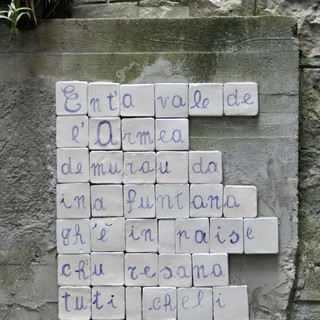 Ent'a vale de
l'Armea
demurau da
ina funtana
gh'è in paise
ch'u resana
tuti cheli